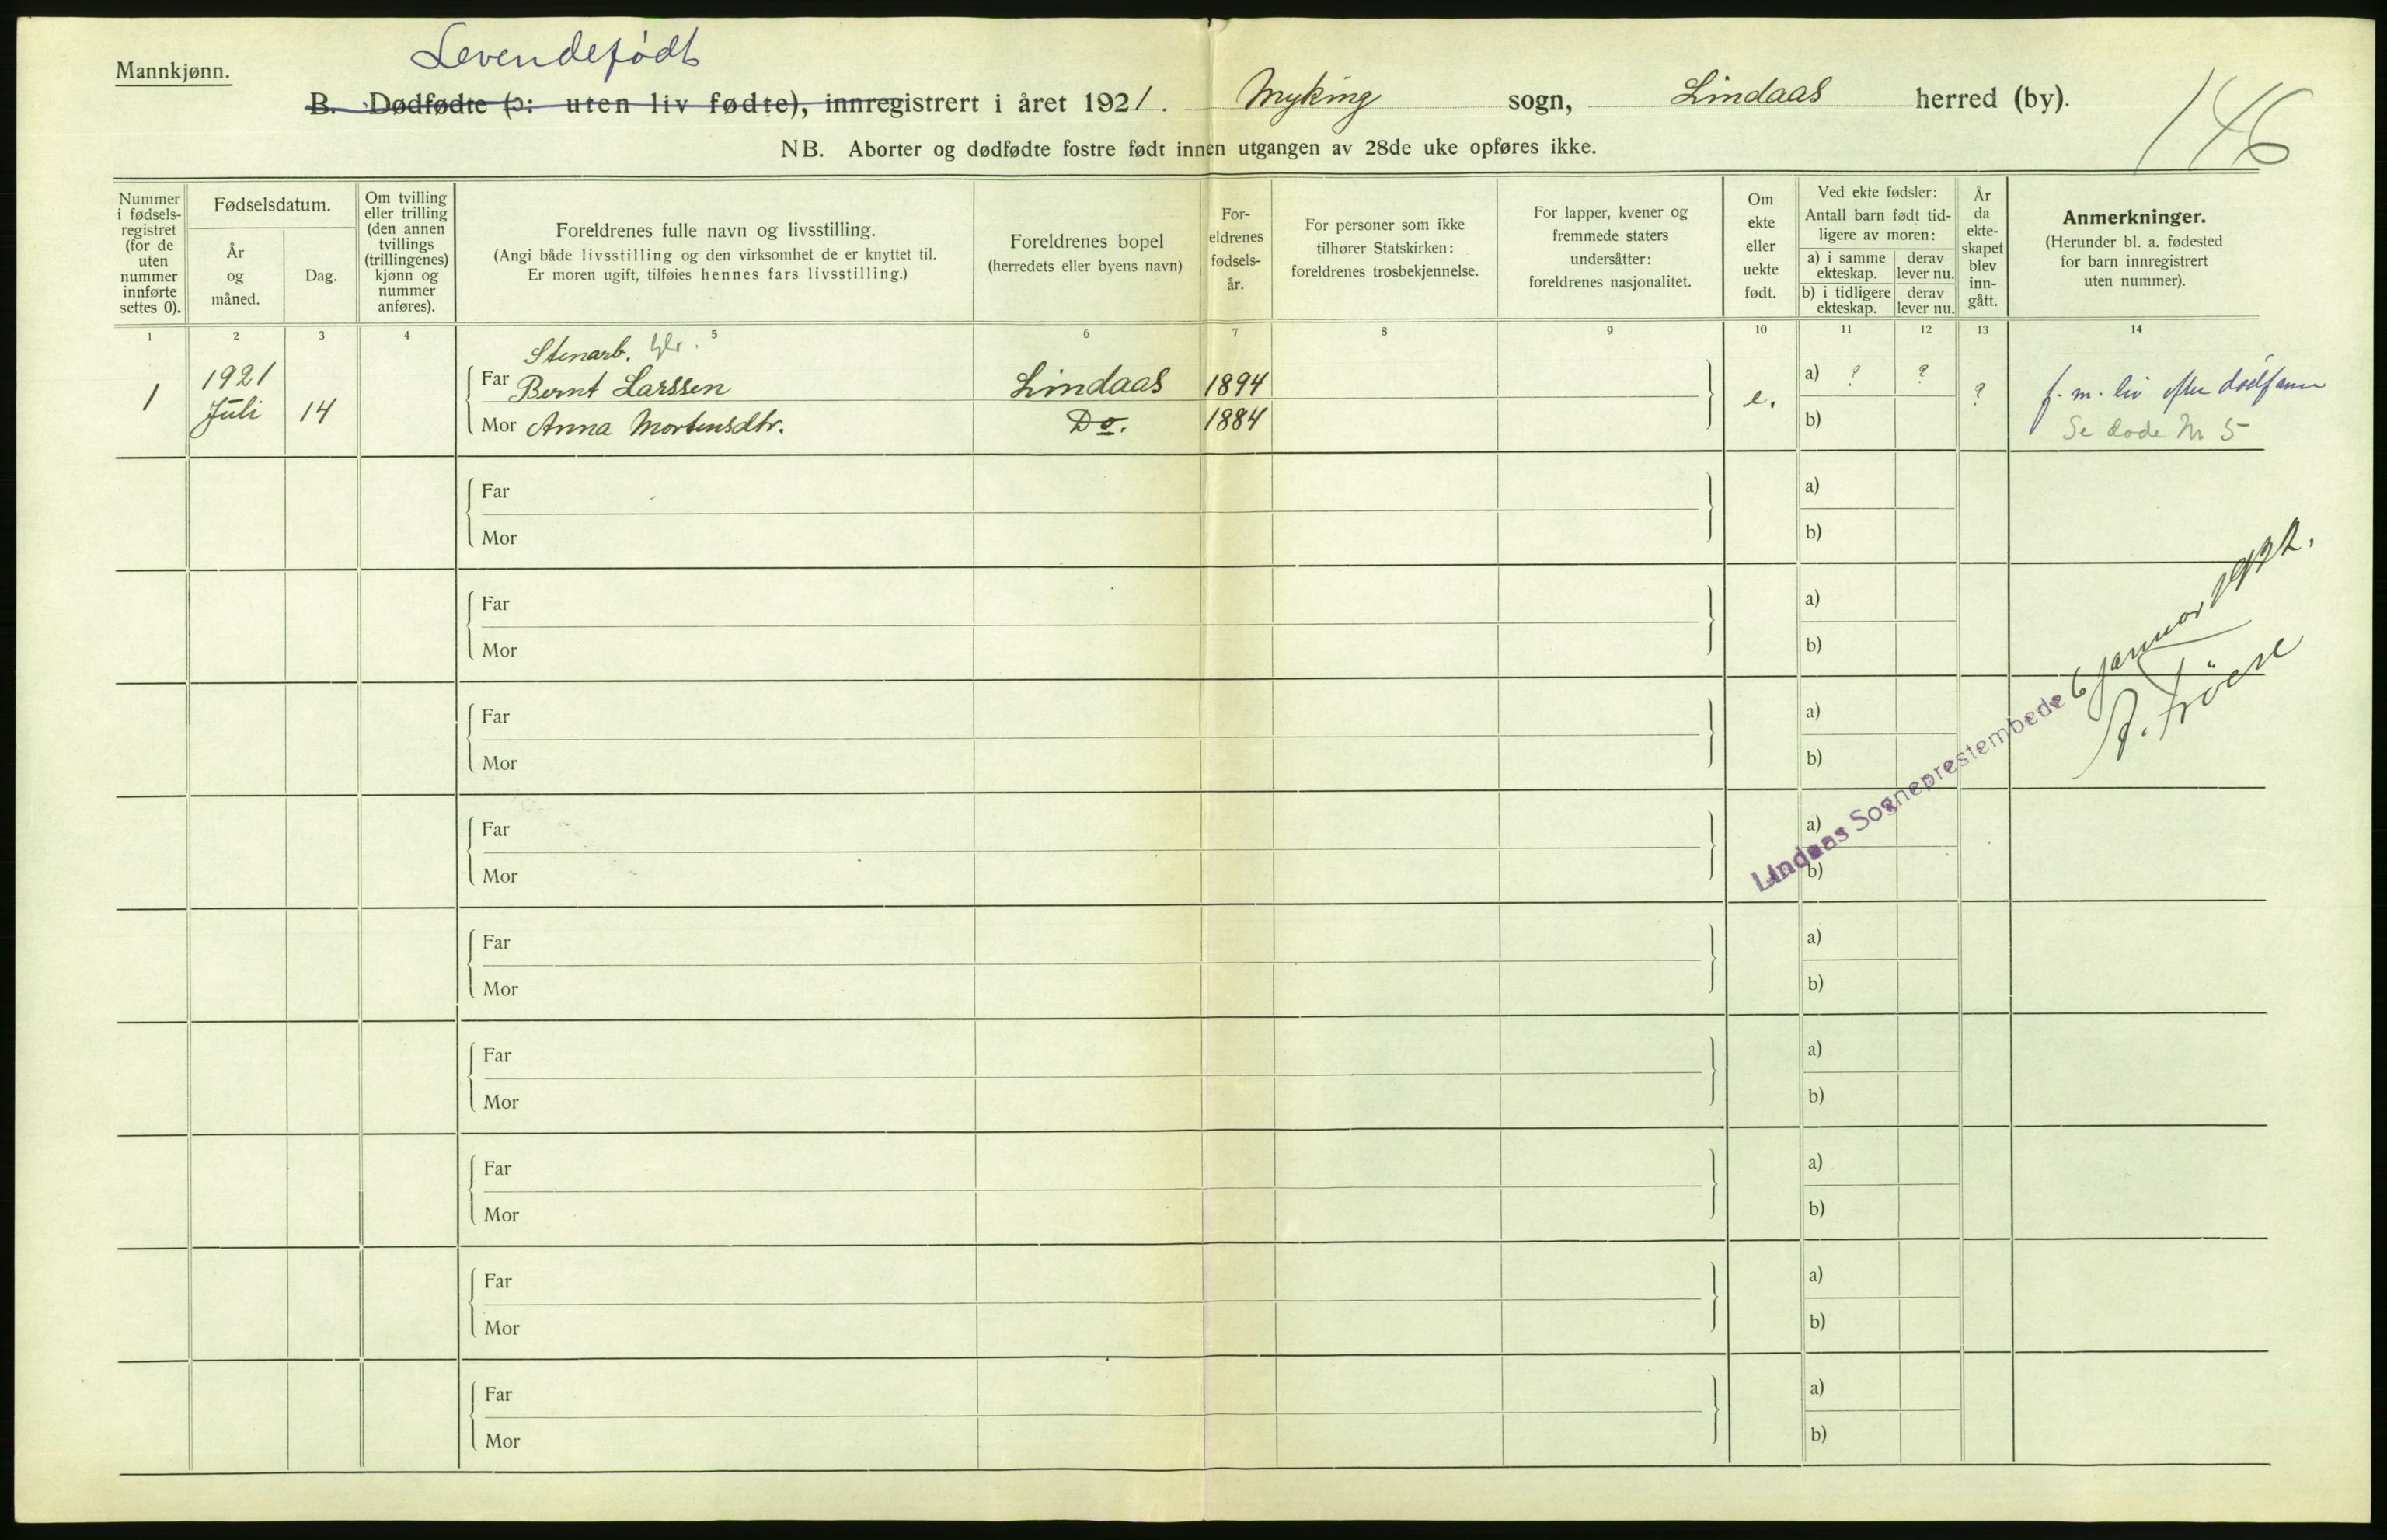 Mannkjønn.
Levendefødt
B. Dødfødte (ɔ: uten liv fødte), innregistrert i året 1921. Myking sogn, Lindaas herred (by).
146
NB. Aborter og dødfødte fostre født innen utgangen av 28de uke opføres ikke.
Nummer i fødsels-registret (for de uten nummer innførte settes 0).
Fødselsdatum.
År og måned.
Dag.
Om tvilling eller trilling (den annen tvillings (trillingenes) kjønn og nummer anføres).
Foreldrenes fulle navn og livsstilling.
(Angi både livsstilling og den virksomhet de er knyttet til.
Er moren ugift, tilføies hennes fars livsstilling.)
Foreldrenes bopel
(herredets eller byens navn)
For-eldrenes fødsels-år.
For personer som ikke tilhører Statskirken: foreldrenes trosbekjennelse.
For lapper, kvener og fremmede staters undersåtter: foreldrenes nasjonalitet.
Om ekte eller uekte født.
Ved ekte fødsler:
Antall barn født tid-ligere av moren:
a) i samme ekteskap.
derav lever nu.
b) i tidligere ekteskap.
derav lever nu.
År da ekte-skapet blev inn-gått.
Anmerkninger.
(Herunder bl. a. fødested for barn innregistrert uten nummer).
1 2 3 4 5 6 7 8 9 10 11 12 13 14
Stenarb.
1 1921 Juli 14
Far Bernt Larssen Lindaas 1894 e. a) ? ? ? f. m. liv efter dødfanm
Mor Anna Mortensdtr. Do. 1884 b) Se døde Nr 5
Far a)
Mor b)
Far a)
Mor b)
Far a)
Mor b)
Far a)
Mor b)
Far a)
Mor b)
Far a)
Mor b)
Far a)
Mor b)
Far a)
Mor b)
Far a)
Mor b)
Lindaas Sogneprestembede 6 januar 1922.